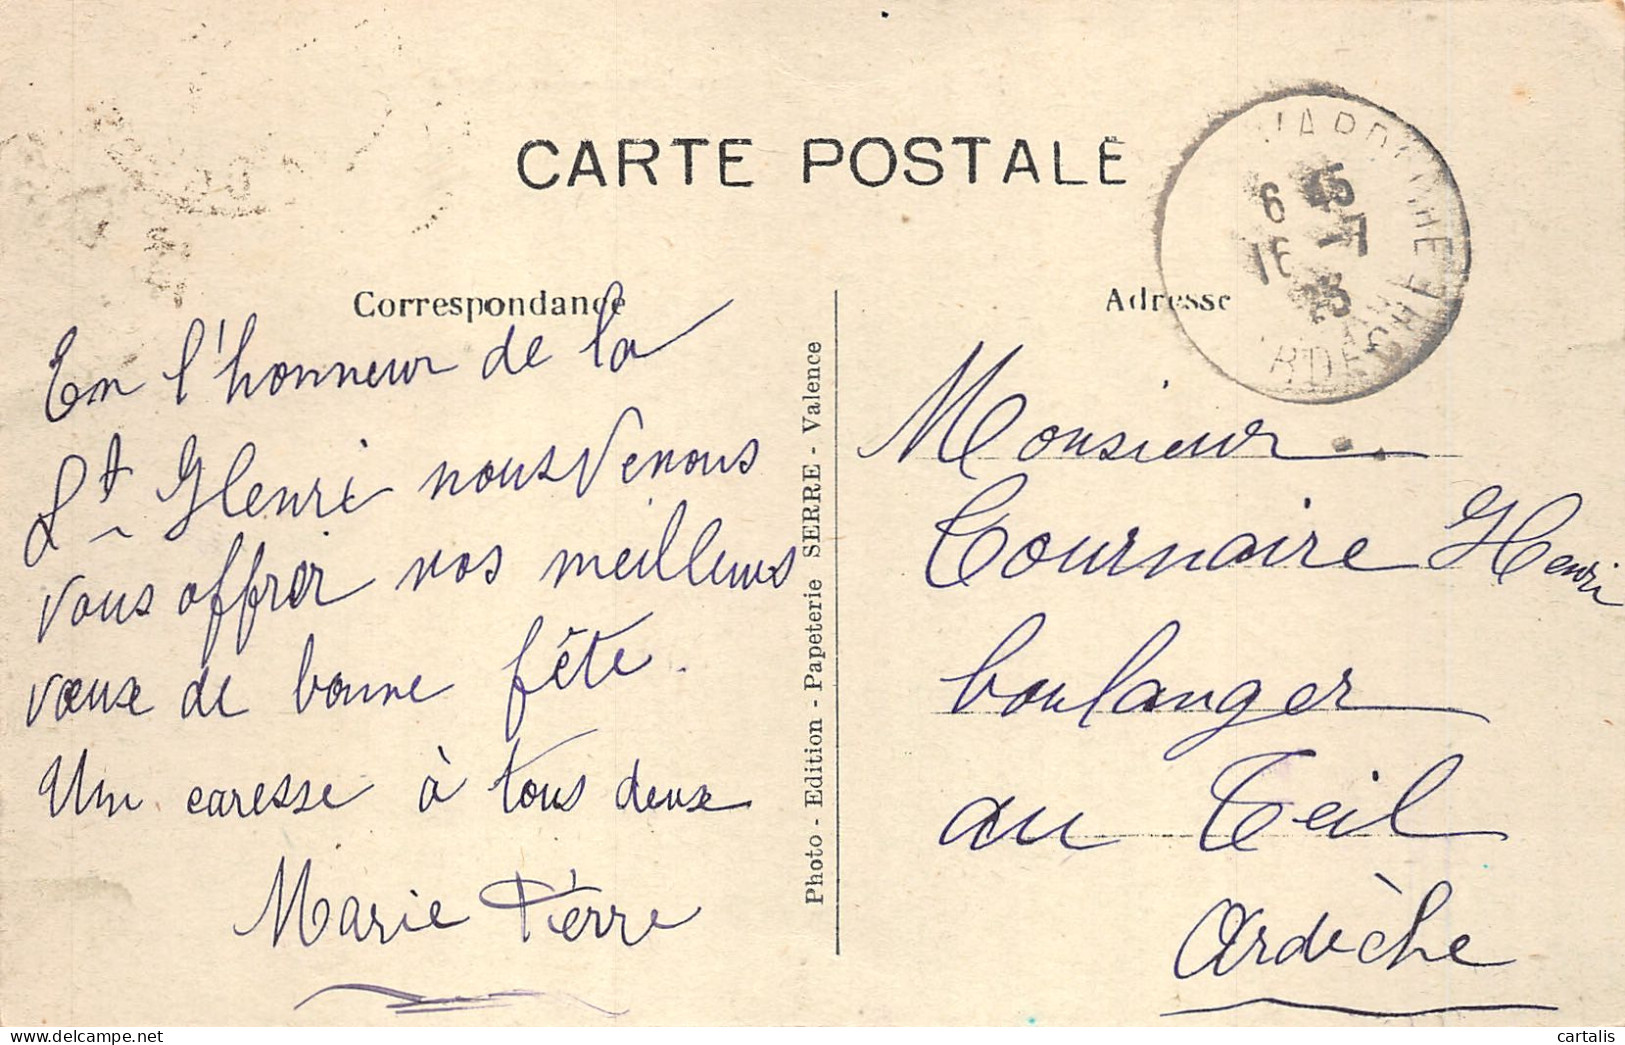 CARTE POSTALE
Correspondance
Adresse
6 45
16 -7
25
ARDÈCHE
En l'honneur de la
St Henri nous venons
vous offrir nos meilleurs
vœux de bonne fête.
Un caresse à tous deux
Marie Pierre
Photo - Edition - Papeterie SERRE - Valence
Monsieur
Tournaire Henri
boulanger
au Teil
Ardèche
cartalis